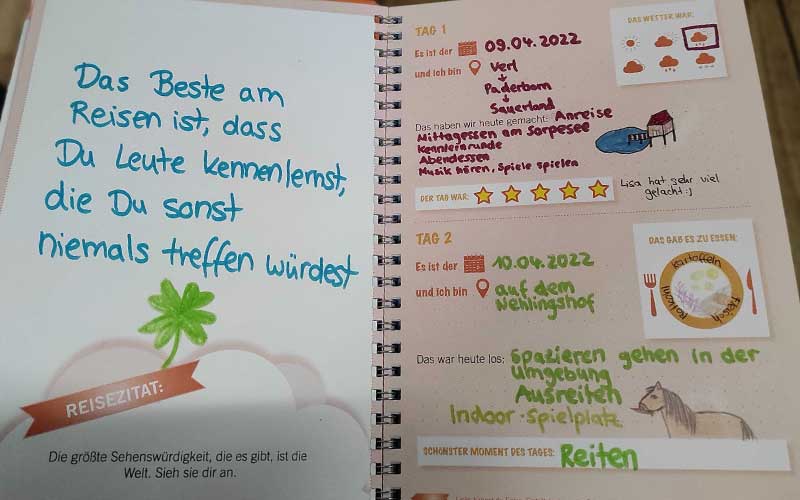 Das Beste am
Reisen ist, dass
Du Leute kennenlernst,
die Du sonst
niemals treffen würdest
REISEZITAT:
Die größte Sehenswürdigkeit, die es gibt, ist die
Welt. Sieh sie dir an.
TAG 1
DAS WETTER WAR:
Es ist der 09.04.2022
und ich bin Verl
↓
Paderborn
↓
Sauerland
Das haben wir heute gemacht: Anreise
Mittagessen am Sorpesee
Kennlernrunde
Abendessen
Musik hören, Spiele spielen
DER TAG WAR:
Lisa hat sehr viel
gelacht :)
TAG 2
DAS GAB ES ZU ESSEN:
Kartoffeln
Fleisch
Rotkohl
Es ist der 10.04.2022
und ich bin auf dem
Nehlingshof
Das war heute los: Spazieren gehen in der
Umgebung
Ausreiten
Indoor-Spielplatz
SCHÖNSTER MOMENT DES TAGES: Reiten